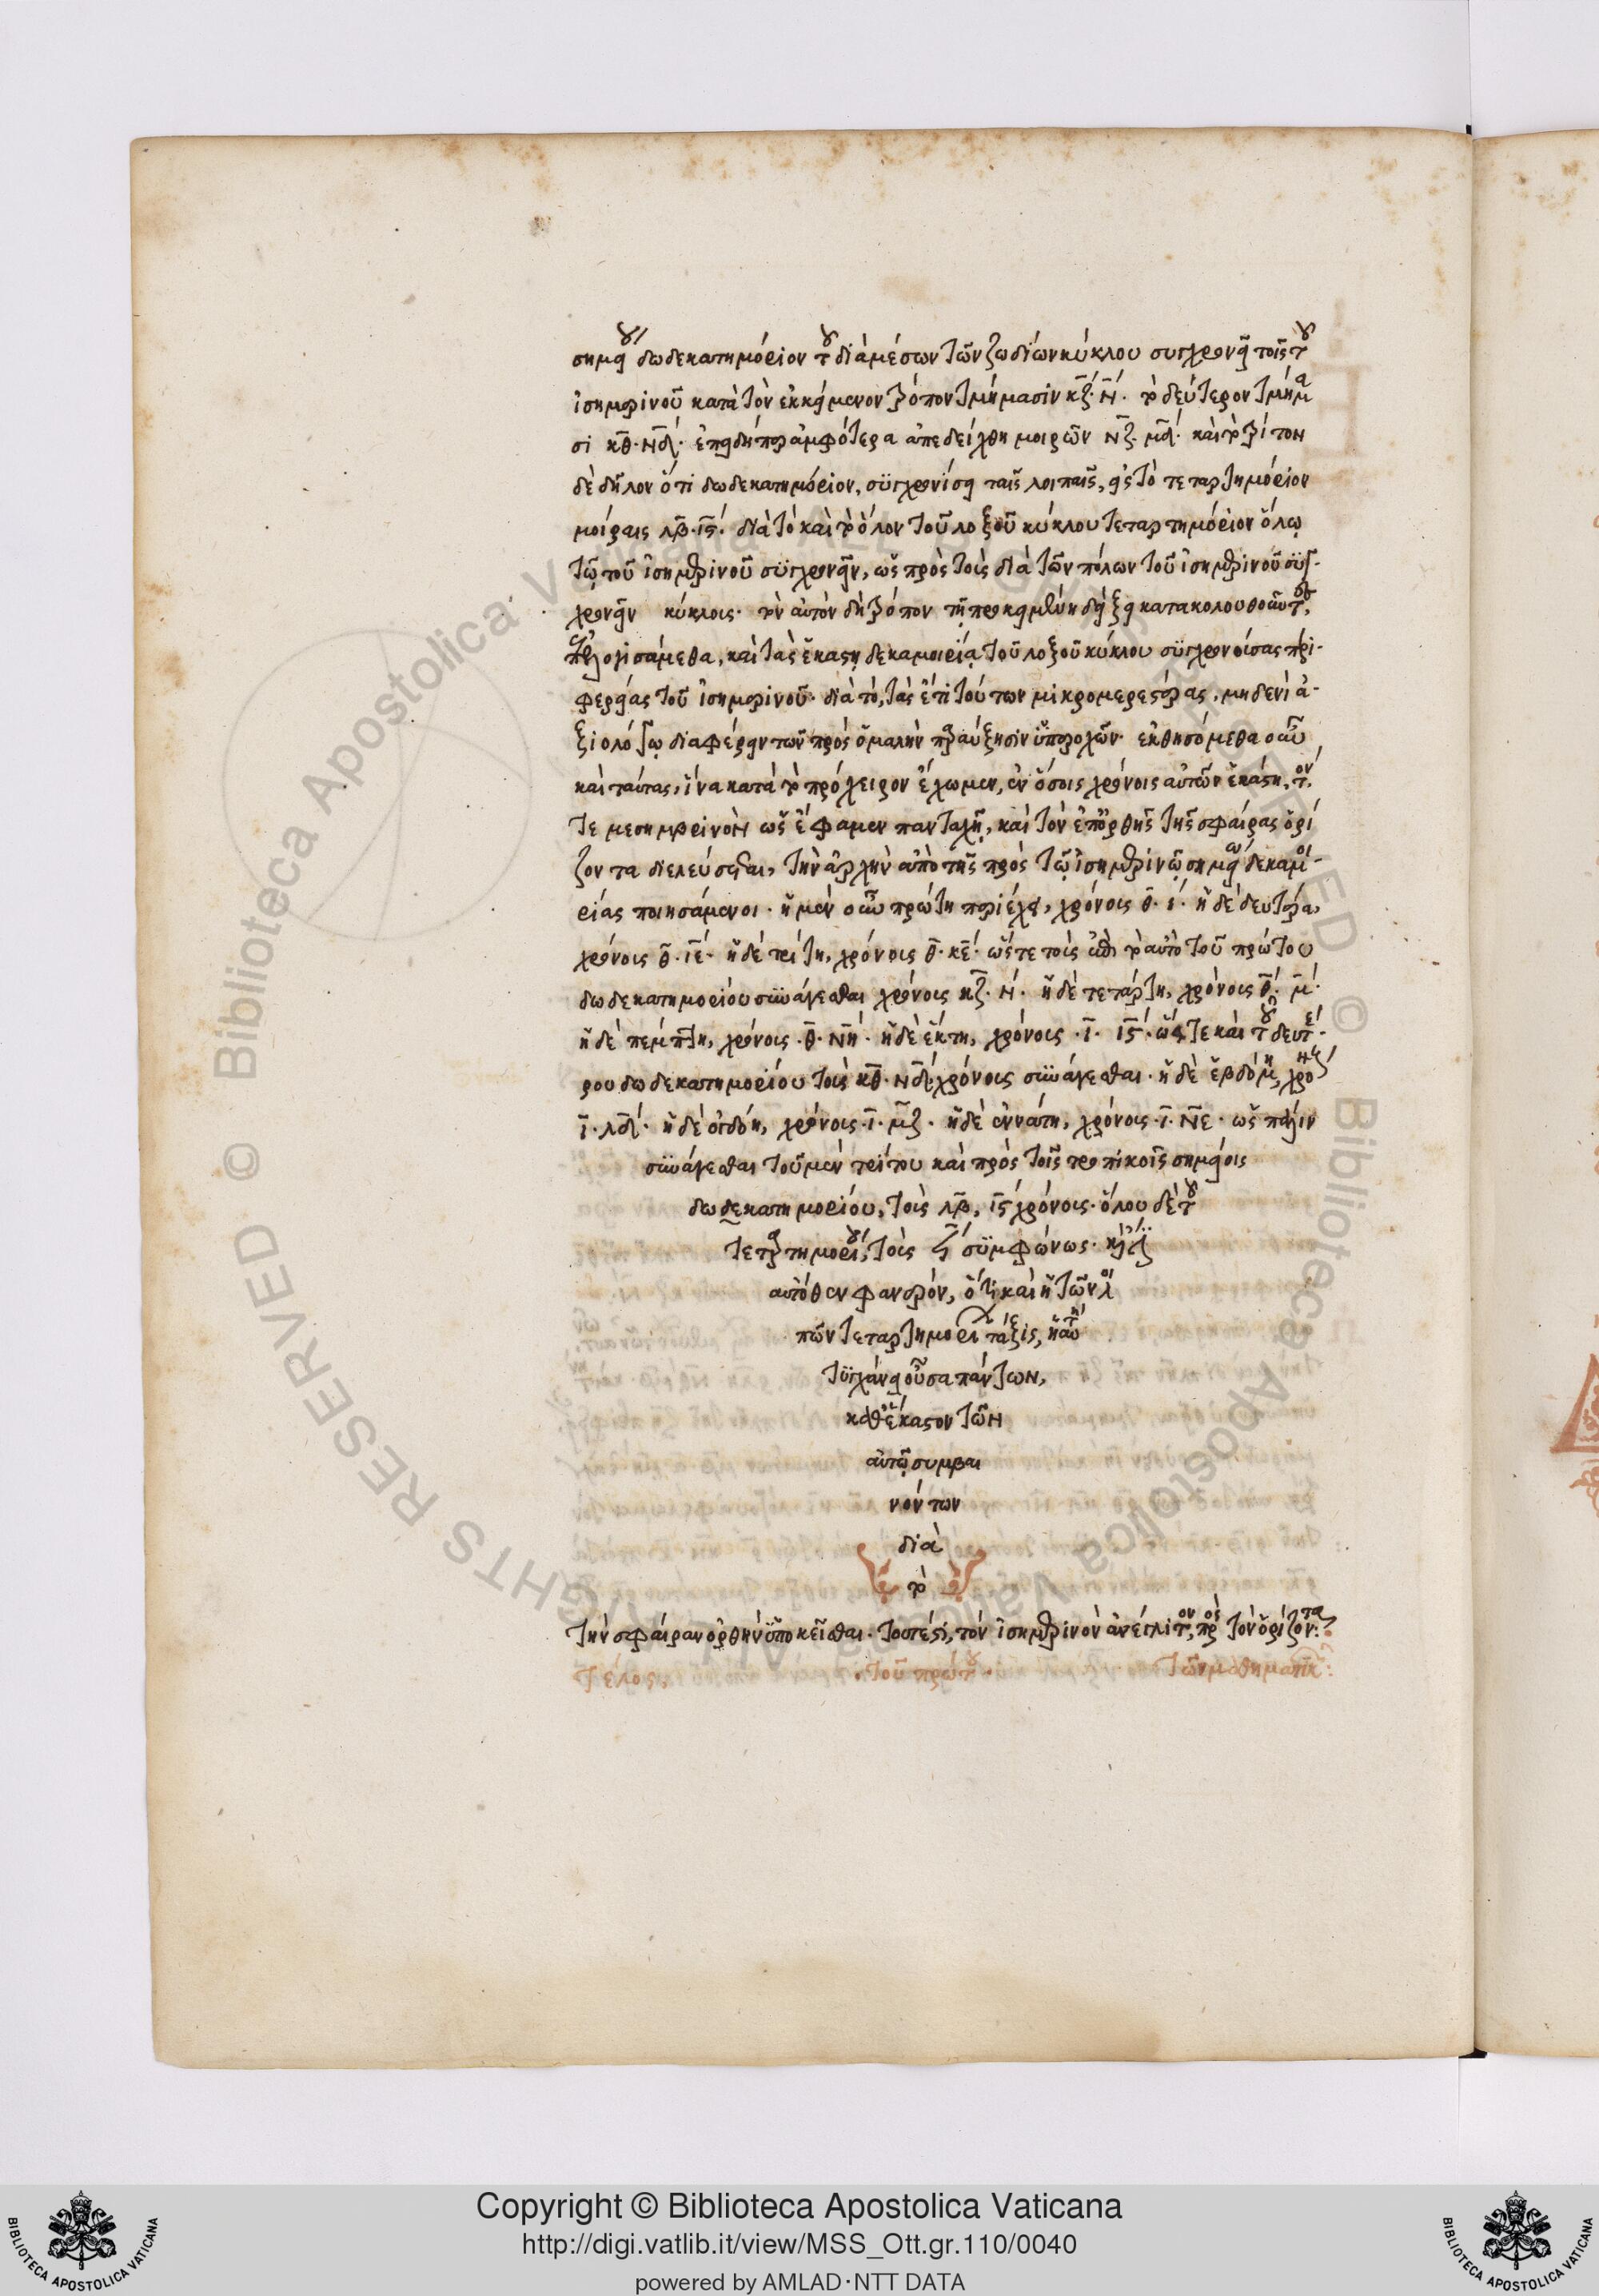 σημείου δωδεκατημόριον τοῦ διὰ μέσων τῶν ζωδίων κύκλου συγχρονεῖ τοῖς τοῦ
ἰσημερινοῦ κατὰ τὸν ἐκκείμενον τρόπον τμήμασιν κζ ν· τὸ δεύτερον τμήμα
σι κθ· νδ· ἐπειδήπερ ἀμφότερα ἀπεδείχθη μοιρῶν νζ μδ· καὶ τὸ τρίτον
δὲ δῆλον ὅτι δωδεκατημόριον, συγχρονίσει ταῖς λοιπαῖς, εἰς τὸ τεταρτημόριον
μοίραις λβ· ις· διὰ τὸ καὶ τὸ ὅλον τοῦ λοξοῦ κύκλου τεταρτημόριον ὅλῳ
τῷ τοῦ ἰσημερινοῦ συγχρονεῖν, ὡς πρὸς τοὺς διὰ τῶν πόλων τοῦ ἰσημερινοῦ
κύκλοις· τὸν αὐτὸν δὴ τρόπον τῇ προκειμένῃ δείξει κατακολουθοῦντες,
ἐπελογισάμεθα, καὶ τὰς ἑκάστῃ δεκαμοιρίᾳ τοῦ λοξοῦ κύκλου συγχρονούσας περι-
φερείας τοῦ ἰσημερινοῦ· διὰ τὸ, τὰς ἔτι τούτων μικρομερεστέρας, μηδενὶ ἀ-
ξιολόγῳ διαφέρειν τῶν πρὸς ὁμαλὴν παραύξησιν ὑπεροχῶν· ἐκθησόμεθα οὖν
καὶ ταύτας, ἵνα κατὰ τὸ πρόχειρον ἔχωμεν, ἐν ὅσοις χρόνοις αὐτῶν ἑκάστη, τόν
τε μεσημβρινὸν ὡς ἔφαμεν πανταχῇ, καὶ τὸν ἐπ' ὀρθῆς τῆς σφαίρας ὁρί
ζοντα διελεύσεται, τὴν ἀρχὴν ἀπὸ τῆς πρὸς τῷ ἰσημερινῷ σημείῳ δεκαμοι-
ρίας ποιησάμενοι· ἡ μὲν οὖν πρώτη περιέχει, χρόνους θ· ι· ἡ δὲ δευτέρα,
χρόνοις θ· ιε· ἡ δὲ τρίτη, χρόνοις θ· κε· ὥστε τοὺς ἐπὶ τὸ αὐτὸ τοῦ πρώτου
δωδεκατημορίου συνάγεσθαι χρόνοις κζ· ν· ἡ δὲ τετάρτη, χρόνοις θ· μ·
ἡ δὲ πέμπτη, χρόνοις θ· νη· ἡ δὲ ἕκτη, χρόνοις ι· ις· ὥστε καὶ τοῦ δευτέ-
ρου δωδεκατημορίου τοὺς κθ· νδ· χρόνοις συνάγεσθαι· ἡ δὲ ἑβδόμη, χρόνοις
ι· λδ· ἡ δὲ ὀγδόη, χρόνοις ι· μζ· ἡ δὲ ἐννάτη, χρόνοις ι· νε· ὡς πάλιν
συνάγεσθαι τοῦ μὲν τρίτου καὶ πρὸς τοῖς τροπικοῖς σημείοις
δωδεκατημορίου, τοὺς λβ, ις χρόνοις· ὅλου δὲ τοῦ
τεταρτημορίου, τοὺς συμφώνως·
αὐτόθεν φανερὸν, ὅτι καὶ ἡ τῶν λοι
πῶν τεταρτημορίων τάξις, ἡ αὐτὴ
τυγχάνει οὖσα πάντων,
καθ' ἕκαστον τῶν
αὐτῷ συμβαι
νόντων
διὰ
τὸ
τὴν σφαῖραν ὀρθὴν ὑποκεῖσθαι· τουτέστι, τὸν ἰσημερινὸν ἀνέγκλιτον, πρὸς τὸν ὁρίζοντα:
Τέλος, · τοῦ πρώτου · τῶν μαθηματικῶν:
Copyright © Biblioteca Apostolica Vaticana
http://digi.vatlib.it/view/MSS_Ott.gr.110/0040
powered by AMLAD·NTT DATA
© Biblioteca Apostolica Vaticana ALL RIGHTS RESERVED
BIBLIOTECA APOSTOLICA VATICANA
BIBLIOTECA APOSTOLICA VATICANA